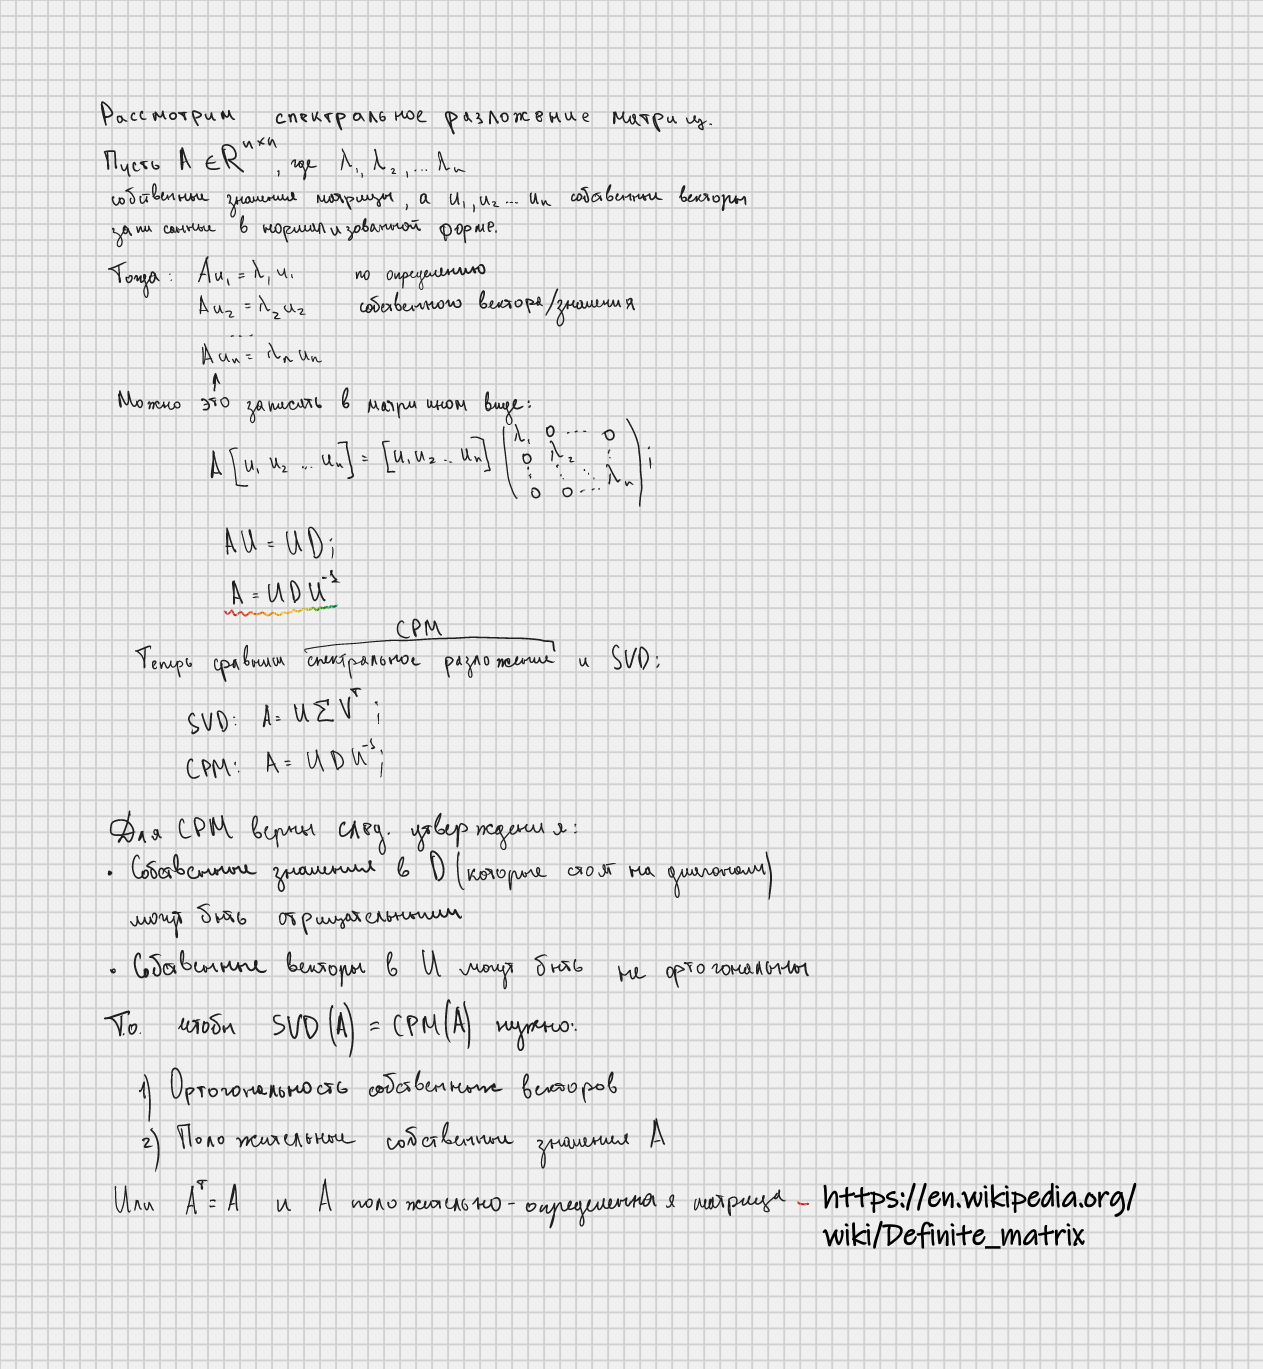 Рассмотрим спектральное разложение матриц.
Пусть A ∈ R^{n×n}, где λ₁, λ₂, ... λₙ
собственные значения матрицы, а u₁, u₂ ... uₙ собственные векторы
записанные в нормализованной форме.
Тогда: Au₁ = λ₁u₁ по определению
Au₂ = λ₂u₂ собственного вектора/значения
...
Auₙ = λₙuₙ
↑
Можно это записать в матричном виде:
A[u₁ u₂ ... uₙ] = [u₁ u₂ .. uₙ] (λ₁ 0 ... 0
0 λ₂ ⋮
⋮ ⋱ λₙ
0 0 ...);
AU = UD;
A = UDU⁻¹
СРМ
Теперь сравним спектральное разложение и SVD:
SVD: A = UΣVᵀ;
СРМ: A = UDU⁻¹;
Для СРМ верны след. утверждения:
• Собственные значения в D (которые стоят на диагонали)
могут быть отрицательными
• Собственные векторы в U могут быть не ортогональны
Т.о. чтобы SVD(A) = СРМ(A) нужно:
1) Ортогональность собственных векторов
2) Положительные собственные значения A
Или Aᵀ = A и A положительно-определенная матрица - https://en.wikipedia.org/
wiki/Definite_matrix